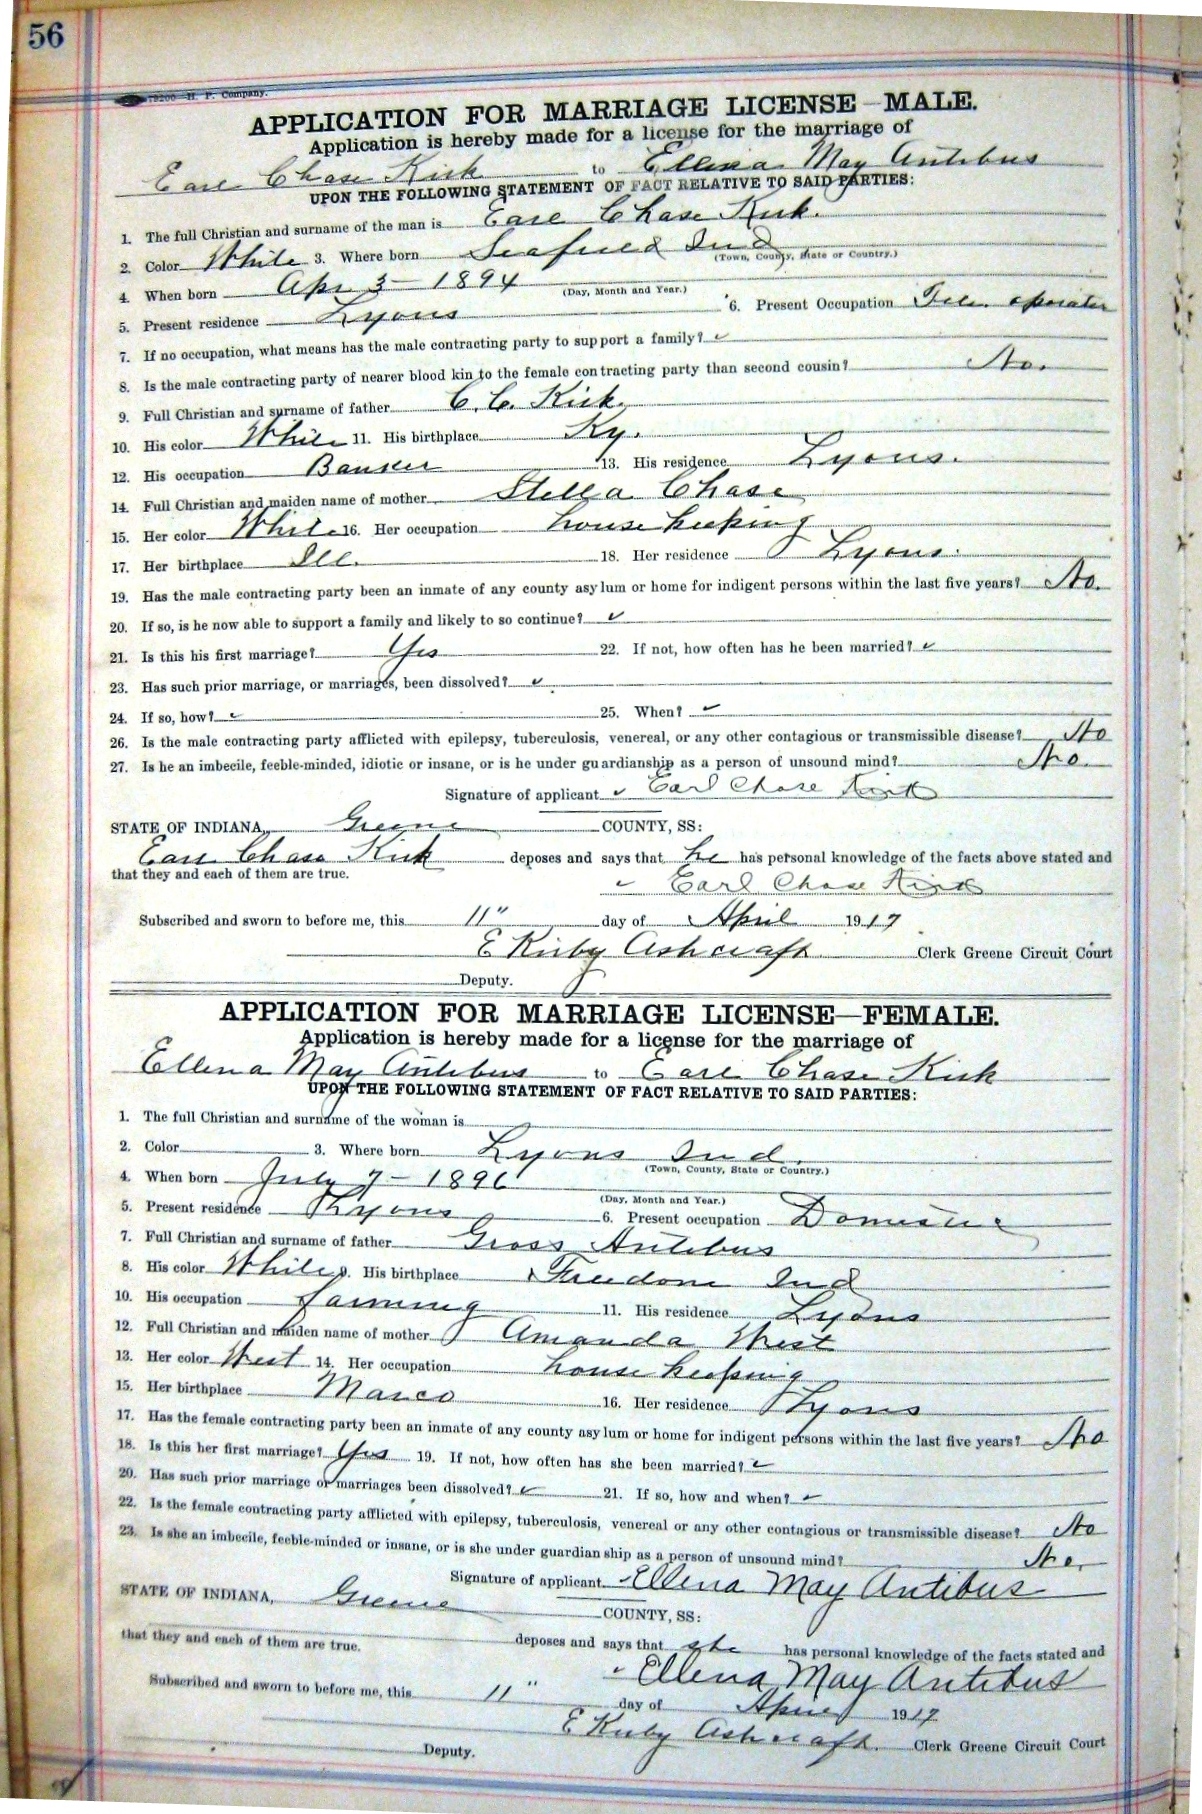 56
79200—H. P. Company.
APPLICATION FOR MARRIAGE LICENSE—MALE.
Application is hereby made for a license for the marriage of
Earl Chase Kirk to Ellena May Antibus
UPON THE FOLLOWING STATEMENT OF FACT RELATIVE TO SAID PARTIES:
1. The full Christian and surname of the man is Earl Chase Kirk.
2. Color White 3. Where born Seafield Ind
(Town, County, State or Country.)
4. When born Apr 3 — 1894
(Day, Month and Year.)
5. Present residence Lyons 6. Present Occupation Tele. operator
7. If no occupation, what means has the male contracting party to support a family? ✓
8. Is the male contracting party of nearer blood kin to the female contracting party than second cousin? No.
9. Full Christian and surname of father C. C. Kirk.
10. His color White 11. His birthplace Ky.
12. His occupation Banker 13. His residence Lyons.
14. Full Christian and maiden name of mother Stella Chase
15. Her color White 16. Her occupation housekeeping
17. Her birthplace Ill. 18. Her residence Lyons.
19. Has the male contracting party been an inmate of any county asylum or home for indigent persons within the last five years? No.
20. If so, is he now able to support a family and likely to so continue? ✓
21. Is this his first marriage? Yes 22. If not, how often has he been married? ✓
23. Has such prior marriage, or marriages, been dissolved? ✓
24. If so, how? ✓ 25. When? ✓
26. Is the male contracting party afflicted with epilepsy, tuberculosis, venereal, or any other contagious or transmissible disease? No
27. Is he an imbecile, feeble-minded, idiotic or insane, or is he under guardianship as a person of unsound mind? No.
Signature of applicant ✓ Earl Chase Kirk
STATE OF INDIANA, Greene COUNTY, SS:
Earl Chase Kirk deposes and says that he has personal knowledge of the facts above stated and
that they and each of them are true.
✓ Earl Chase Kirk
Subscribed and sworn to before me, this 11" day of April 1917
E Kirby Ashcraft Clerk Greene Circuit Court
Deputy.
APPLICATION FOR MARRIAGE LICENSE—FEMALE.
Application is hereby made for a license for the marriage of
Ellena May Antibus to Earl Chase Kirk
UPON THE FOLLOWING STATEMENT OF FACT RELATIVE TO SAID PARTIES:
1. The full Christian and surname of the woman is
2. Color 3. Where born Lyons Ind.
(Town, County, State or Country.)
4. When born July 7 — 1896
(Day, Month and Year.)
5. Present residence Lyons 6. Present occupation Domestic
7. Full Christian and surname of father Gross Antibus
8. His color White 9. His birthplace Freedom Ind
10. His occupation farming 11. His residence Lyons
12. Full Christian and maiden name of mother Amanda West
13. Her color West 14. Her occupation housekeeping
15. Her birthplace Marco 16. Her residence Lyons
17. Has the female contracting party been an inmate of any county asylum or home for indigent persons within the last five years? No
18. Is this her first marriage? Yes 19. If not, how often has she been married? ✓
20. Has such prior marriage or marriages been dissolved? ✓ 21. If so, how and when? ✓
22. Is the female contracting party afflicted with epilepsy, tuberculosis, venereal or any other contagious or transmissible disease? No
23. Is she an imbecile, feeble-minded or insane, or is she under guardianship as a person of unsound mind? No.
Signature of applicant Ellena May Antibus
STATE OF INDIANA, Greene COUNTY, SS:
deposes and says that she has personal knowledge of the facts stated and
that they and each of them are true.
✓ Ellena May Antibus
Subscribed and sworn to before me, this 11" day of April 1917
E Kirby Ashcraft. Clerk Greene Circuit Court
Deputy.